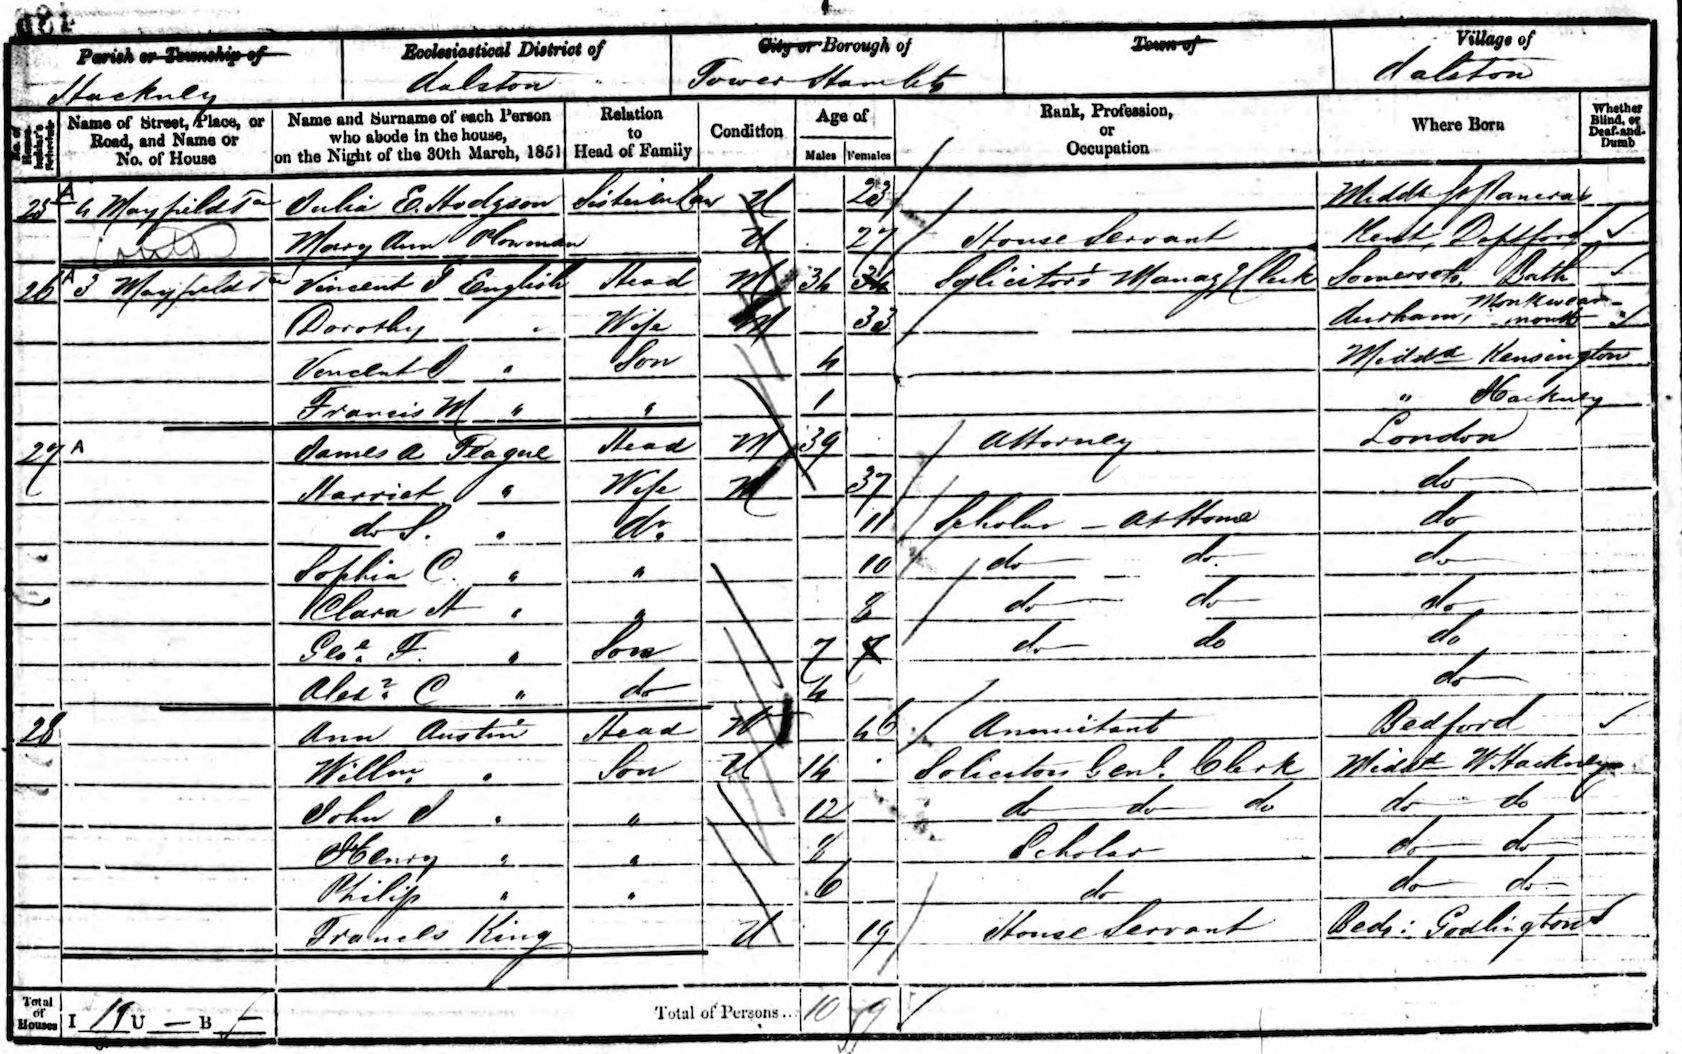 Parish or Township of Ecclesiastical District of City or Borough of Town of Village of
Hackney Dalston Tower Hamlets Dalston
Name of Street, Place, or Road, and Name or No. of House Name and Surname of each Person who abode in the house, on the Night of the 30th March, 1851 Relation to Head of Family Condition Age of Males Females Rank, Profession, or Occupation Where Born Whether Blind, or Deaf-and-Dumb
25 A 4 Mayfield Ter Julia E. Hodgson Sister in Law U 23 Middx St Pancras
Mary Ann Plowman U 27 House Servant Kent, Deptford
26 A 3 Mayfield Ter Vincent J English Head M 34 34 Solicitor's Manag.g Clerk Somerset. Bath
Dorothy " Wife M 33 Durham, Monkwear-mouth
Vincent J " Son 4 Middx Kensington
Francis M " " 1 " Hackney
27 A James A Teague Head M 39 Attorney London
Harriet " Wife M 37 do
do S. " Dr. 11 Scholar - At Home do
Sophia C. " " 10 do do do
Clara H " " 8 do do do
Geo.e F. " Son 7 7 do do do
Alex.r C " do 4 do
28 Ann Austin Head W 46 Annuitant Bedford
Willm " Son U 14 Solicitors Genl. Clerk Middx W. Hackney
John J " " 12 do do do do do
Henry " " 8 Scholar do do
Philip " " 6 do do do
Frances King U 19 House Servant Beds: Godlington
Total of Houses I 19 U — B — Total of Persons... 10 9